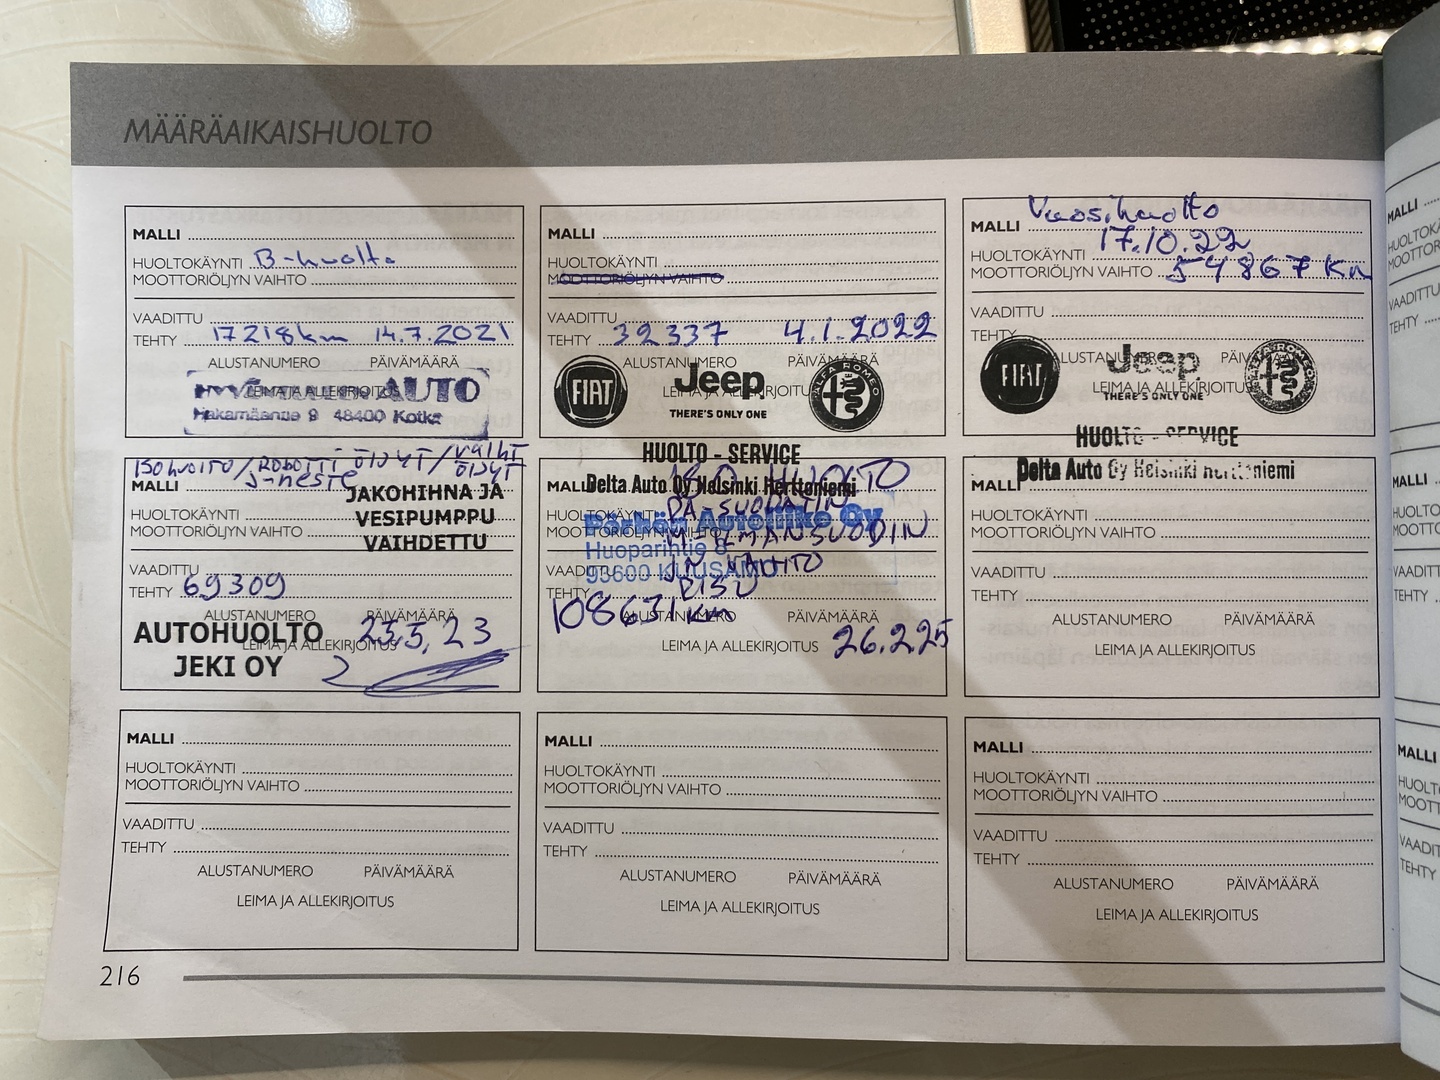 MÄÄRÄAIKAISHUOLTO
MALLI
HUOLTOKÄYNTI B-huolto
MOOTTORIÖLJYN VAIHTO
VAADITTU
TEHTY 17218km 14.7.2021
ALUSTANUMERO PÄIVÄMÄÄRÄ
LEIMA JA ALLEKIRJOITUS
AUTO
Hakamäentie 9 48400 Kotka
MALLI
HUOLTOKÄYNTI
MOOTTORIÖLJYN VAIHTO
VAADITTU
TEHTY 32337 4.1.2022
ALUSTANUMERO PÄIVÄMÄÄRÄ
LEIMA JA ALLEKIRJOITUS
FIAT
Jeep
THERE'S ONLY ONE
ALFA ROMEO
HUOLTO - SERVICE
Delta Auto Oy Helsinki Herttoniemi
Vuosihuolto
MALLI
17.10.22
HUOLTOKÄYNTI
MOOTTORIÖLJYN VAIHTO 54867 Km
VAADITTU
TEHTY
ALUSTANUMERO PÄIVÄMÄÄRÄ
LEIMA JA ALLEKIRJOITUS
FIAT
Jeep
THERE'S ONLY ONE
ALFA ROMEO
HUOLTO - SERVICE
Delta Auto Oy Helsinki Herttoniemi
ROBOTTI ÖLJYT / VAIHT ÖLJYT
J-NESTE
MALLI
JAKOHIHNA JA
VESIPUMPPU
VAIHDETTU
HUOLTOKÄYNTI
MOOTTORIÖLJYN VAIHTO
VAADITTU
TEHTY 69309
ALUSTANUMERO PÄIVÄMÄÄRÄ
23.5.23
LEIMA JA ALLEKIRJOITUS
AUTOHUOLTO
JEKI OY
MALLI
HUOLTO
RA-SUODATIN
HUOLTOKÄYNTI
MOOTTORIÖLJYN VAIHTO
M-ILMANSUODIN
Oy
Huoparintie 8
93600 KUUSAMO
VAADITTU
JN VAIHTO
TEHTY
108631 km
ALUSTANUMERO PÄIVÄMÄÄRÄ
LEIMA JA ALLEKIRJOITUS
26.2.25
MALLI
HUOLTOKÄYNTI
MOOTTORIÖLJYN VAIHTO
VAADITTU
TEHTY
ALUSTANUMERO PÄIVÄMÄÄRÄ
LEIMA JA ALLEKIRJOITUS
MALLI
HUOLTOKÄYNTI
MOOTTORIÖLJYN VAIHTO
VAADITTU
TEHTY
ALUSTANUMERO PÄIVÄMÄÄRÄ
LEIMA JA ALLEKIRJOITUS
MALLI
HUOLTOKÄYNTI
MOOTTORIÖLJYN VAIHTO
VAADITTU
TEHTY
ALUSTANUMERO PÄIVÄMÄÄRÄ
LEIMA JA ALLEKIRJOITUS
MALLI
HUOLTOKÄYNTI
MOOTTORIÖLJYN VAIHTO
VAADITTU
TEHTY
ALUSTANUMERO PÄIVÄMÄÄRÄ
LEIMA JA ALLEKIRJOITUS
216
MALLI
TEHTY
MALLI
MALLI
TEHTY